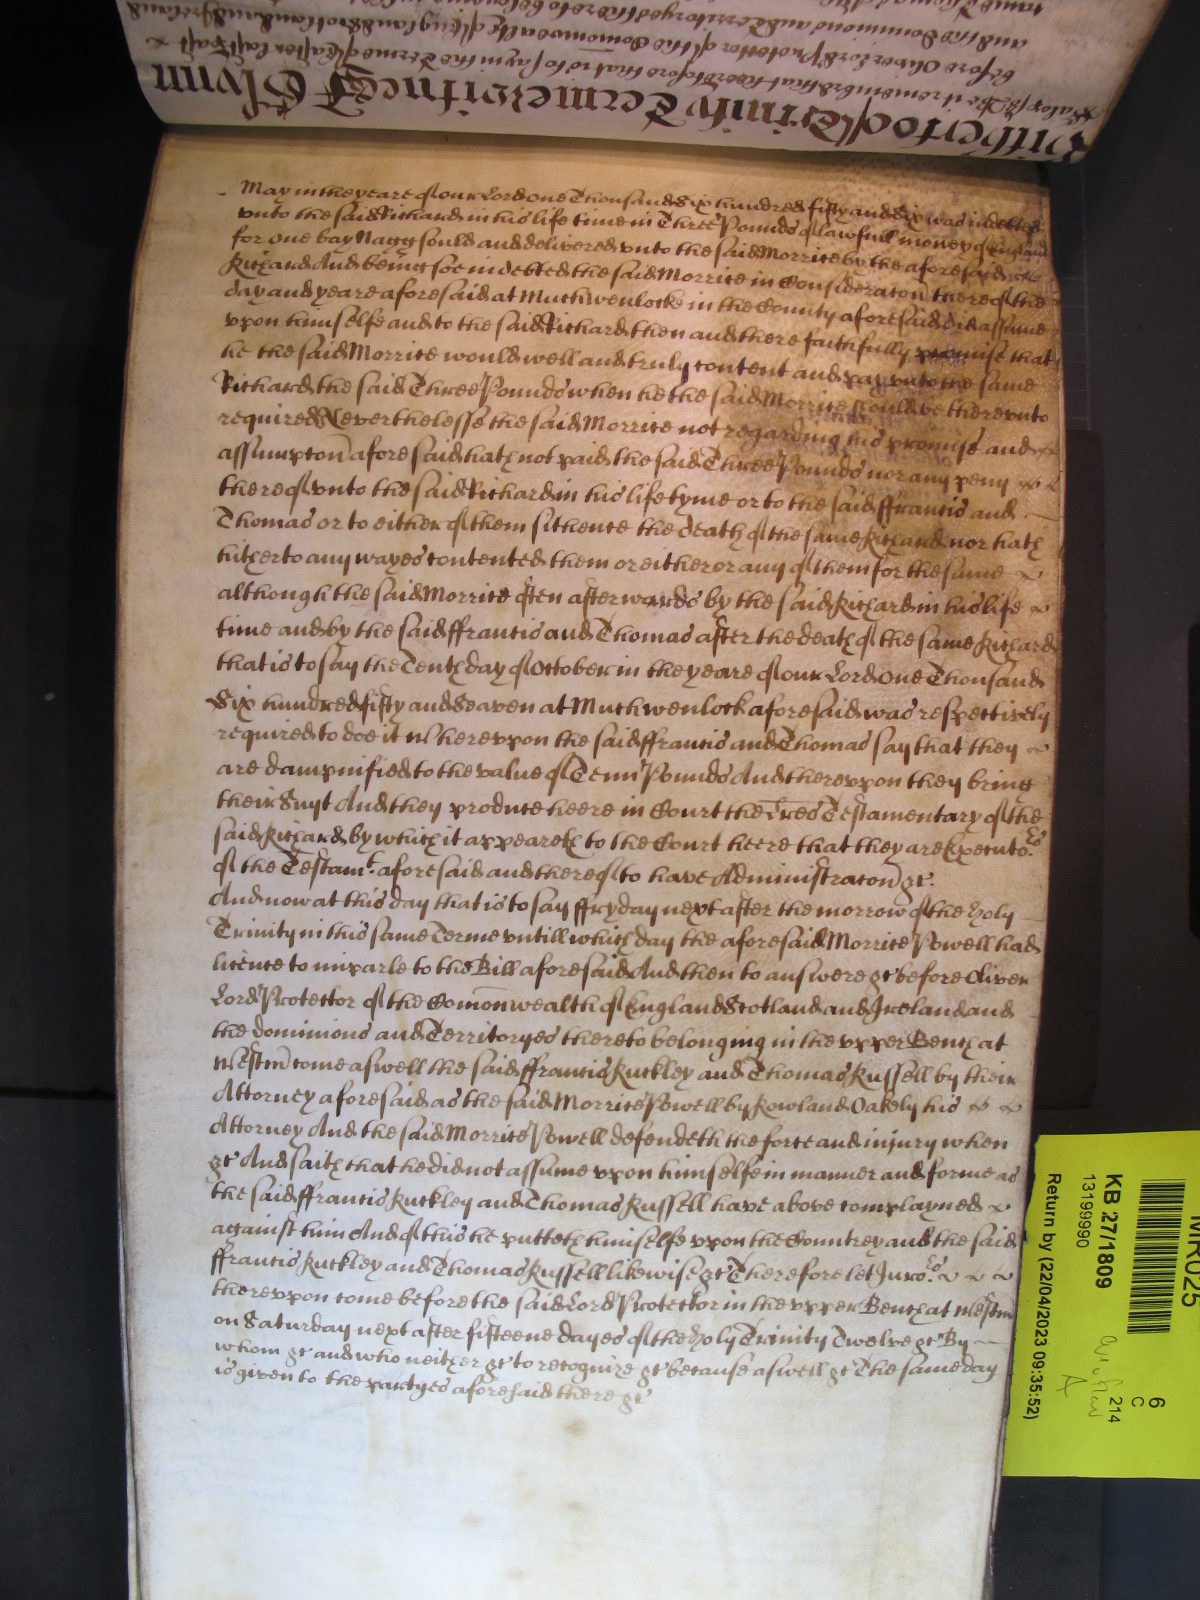 Hitherto of Trinity Terme Witnes J Glynn
Salop ss Be it remembred that heertofore that is to say in the Terme of Easter last past
before Oliver Lord Protector of the Comonwealth of England Scotland and Ireland
and the Dominions and Territoryes thereto belonging
May in the yeare of our Lord One Thousand Six hundred fifty and Six was indebted
unto the said Richard in his life time in Three Pounds of lawfull money of England
for one bay Nagg sould and delivered unto the said Morrice by the aforesaid
Richard And being soe indebted the said Morrice in Consideraton thereof the
day and yeare aforesaid at Muchwenlocke in the County aforesaid did assume
upon himselfe and to the said Richard then and there faithfully promise that
he the said Morrice would well and truly content and pay unto the same
Richard the said Three Pounds when he the said Morrice should be thereunto
required Neverthelesse the said Morrice not regarding his promise and
assumpton aforesaid hath not paid the said Three Pounds nor any peny
thereof unto the said Richard in his life tyme or to the said ffrancis and
Thomas or to either of them sithence the death of the same Richard nor hath
hitherto any wayes contented them or either or any of them for the same
although the said Morrice often afterwards by the said Richard in his life
time and by the said ffrancis and Thomas after the death of the same Richard
that is to say the Tenth day of October in the yeare of our Lord One Thousand
Six hundred fifty and Seaven at Muchwenlock aforesaid was respectively
required to doe it Whereupon the said ffrancis and Thomas say that they
are dampnified to the value of Tenn Pounds And thereupon they bring
their Suyt And they produce heere in Court the Lres Testamentary of the
said Richard by which it appeareth to the Court heere that they are Executors
of the Testamt aforesaid and thereof to have Administraton &c.
And now at this day that is to say ffryday next after the morrow of the holy
Trinity in this same Terme untill which day the aforesaid Morrice Powell had
licence to imparle to the Bill aforesaid And then to answere &c before Oliver
Lord Protector of the Comonwealth of England Scotland and Ireland and
the dominions and Territoryes thereto belonging in the upper Bench at
Westm come aswell the said ffrancis Ruckley and Thomas Russell by their
Attorney aforesaid as the said Morrice Powell by Rowland Oakely his
Attorney And the said Morrice Powell defendeth the force and injury when
&c And saith that he did not assume upon himselfe in manner and forme as
the said ffrancis Ruckley and Thomas Russell have above complayned
against him And of this he putteth himselfe upon the Countrey and the said
ffrancis Ruckley and Thomas Russell likewise &c Therefore let Juro.rs
thereupon come before the said Lord Protector in the upper Bench at Westm
on Saturday next after fifteene dayes of the holy Trinity Twelve &c By
whom &c and who neither &c to recognize &c because aswell &c The same day
is given to the partyes aforesaid there &c
MR025
6
C
214
KB 27/1809
13199990
Return by (22/04/2023 09:35:52)